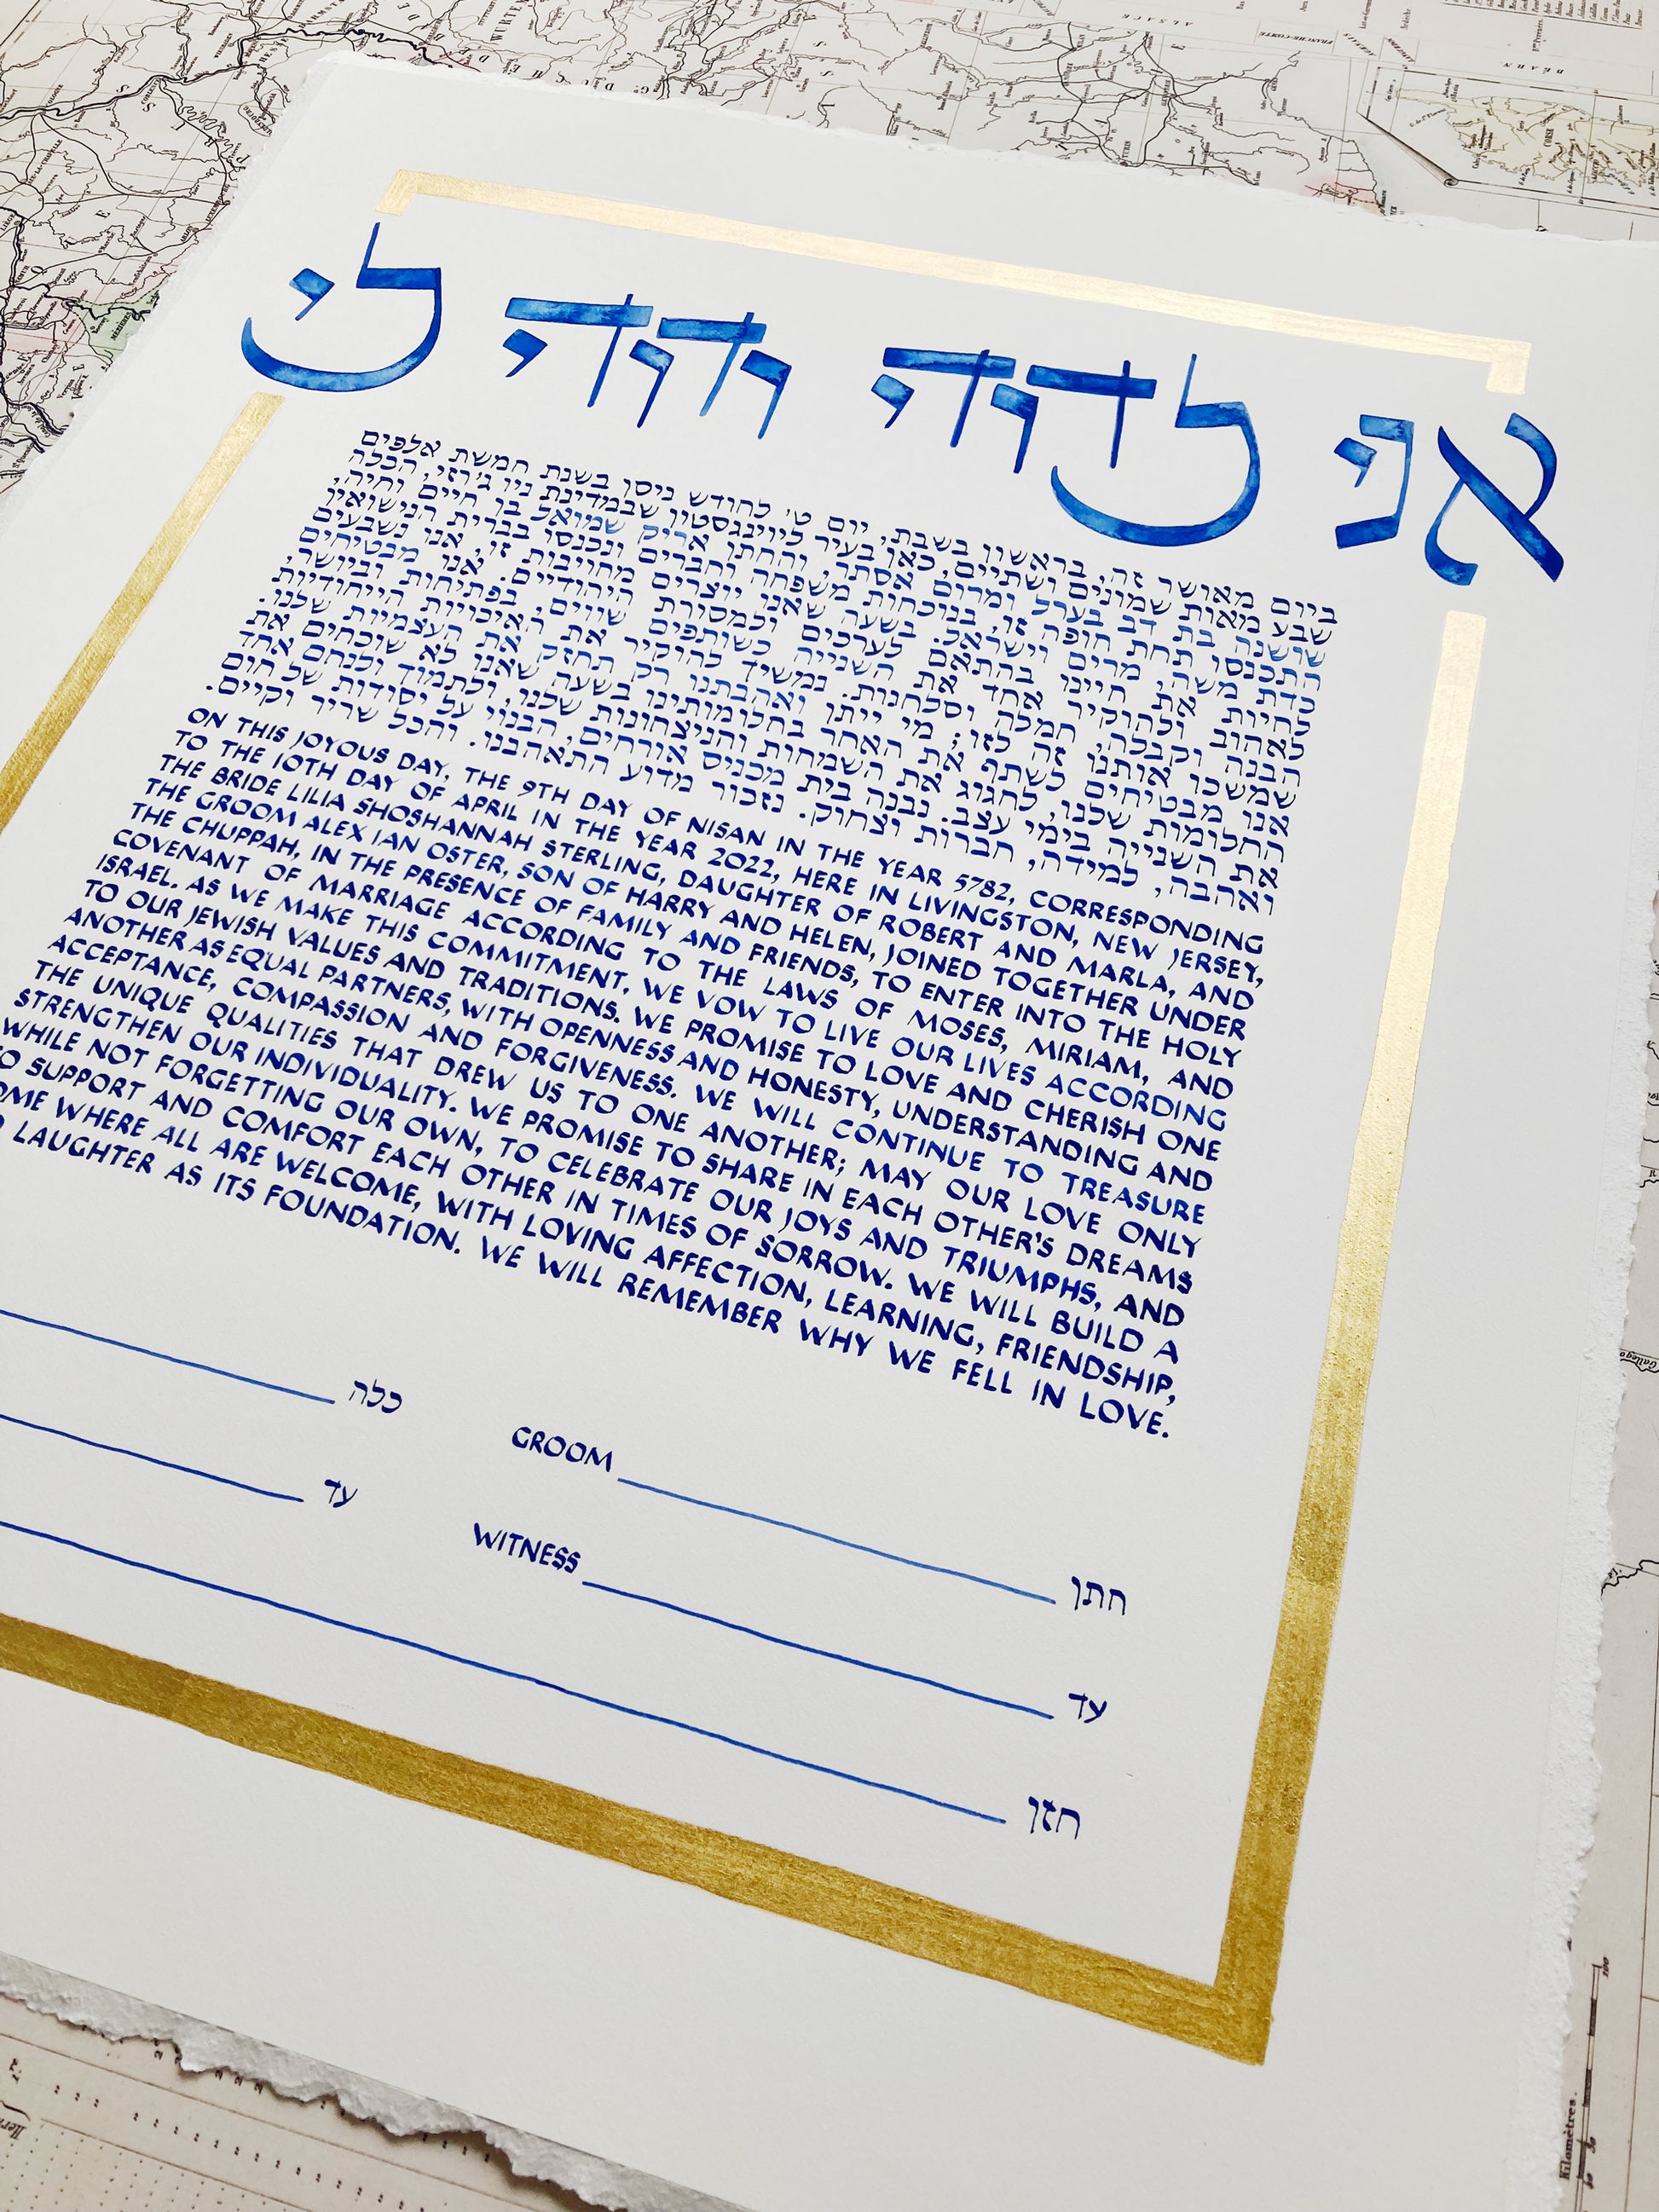 אני לדודי ודודי לי
ביום מאושר זה, בראשון בשבת, יום ט׳ לחודש ניסן בשנת חמשת אלפים
שבע מאות שמונים ושתיים, כאן בעיר ליווינגסטון שבמדינת ניו ג׳רזי, הכלה
שושנה בת דב בערל ומרום אסתר, והחתן אריק שמואל בן חיים וחיה,
התכנסו תחת חופה זו, בנוכחות משפחה וחברים ונכנסו בברית הנישואין
כדת משה, מרים וישראל. בשעה שאנו יוצרים מחויבות זו, אנו נשבעים
לחיות את חיינו בהתאם לערכים ולמסורת היהודיים. אנו מבטיחים
לאהוב ולהוקיר אחד את השנייה כשותפים שווים, בפתיחות וביושר,
הבנה וקבלה, חמלה וסלחנות. נמשיך להוקיר את האיכויות הייחודיות
שמשכו אותנו זה לזו; מי ייתן ואהבתנו רק תחזק את העצמיות שלנו.
אנו מבטיחים לשתף את האחר בחלומותינו בשעה שאנו לא שוכחים את
החלומות שלנו, לחגוג את השמחות והניצחונות שלנו, ולתמוך ולנחם אחד
את השנייה בימי עצב. נבנה בית מכניס אורחים, הבנוי על יסודות של חום
ואהבה, למידה, חברות וצחוק. נזכור מדוע התאהבנו. והכל שריר וקיים.
ON THIS JOYOUS DAY, THE 9TH DAY OF NISAN IN THE YEAR 5782, CORRESPONDING
TO THE 10TH DAY OF APRIL IN THE YEAR 2022, HERE IN LIVINGSTON, NEW JERSEY,
THE BRIDE LILIA SHOSHANNAH STERLING, DAUGHTER OF ROBERT AND MARLA, AND
THE GROOM ALEX IAN OSTER, SON OF HARRY AND HELEN, JOINED TOGETHER UNDER
THE CHUPPAH, IN THE PRESENCE OF FAMILY AND FRIENDS, TO ENTER INTO THE HOLY
COVENANT OF MARRIAGE ACCORDING TO THE LAWS OF MOSES, MIRIAM, AND
ISRAEL. AS WE MAKE THIS COMMITMENT, WE VOW TO LIVE OUR LIVES ACCORDING
TO OUR JEWISH VALUES AND TRADITIONS. WE PROMISE TO LOVE AND CHERISH ONE
ANOTHER AS EQUAL PARTNERS, WITH OPENNESS AND HONESTY, UNDERSTANDING AND
ACCEPTANCE, COMPASSION AND FORGIVENESS. WE WILL CONTINUE TO TREASURE
THE UNIQUE QUALITIES THAT DREW US TO ONE ANOTHER; MAY OUR LOVE ONLY
STRENGTHEN OUR INDIVIDUALITY. WE PROMISE TO SHARE IN EACH OTHER'S DREAMS
WHILE NOT FORGETTING OUR OWN, TO CELEBRATE OUR JOYS AND TRIUMPHS, AND
TO SUPPORT AND COMFORT EACH OTHER IN TIMES OF SORROW. WE WILL BUILD A
OME WHERE ALL ARE WELCOME, WITH LOVING AFFECTION, LEARNING, FRIENDSHIP,
LAUGHTER AS ITS FOUNDATION. WE WILL REMEMBER WHY WE FELL IN LOVE.
כלה
GROOM חתן
עד
WITNESS עד
חזן
Kilomètres